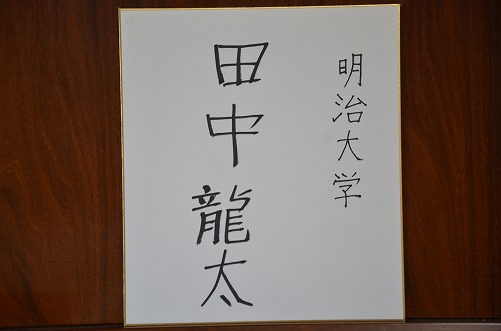 明治大学
田中龍太